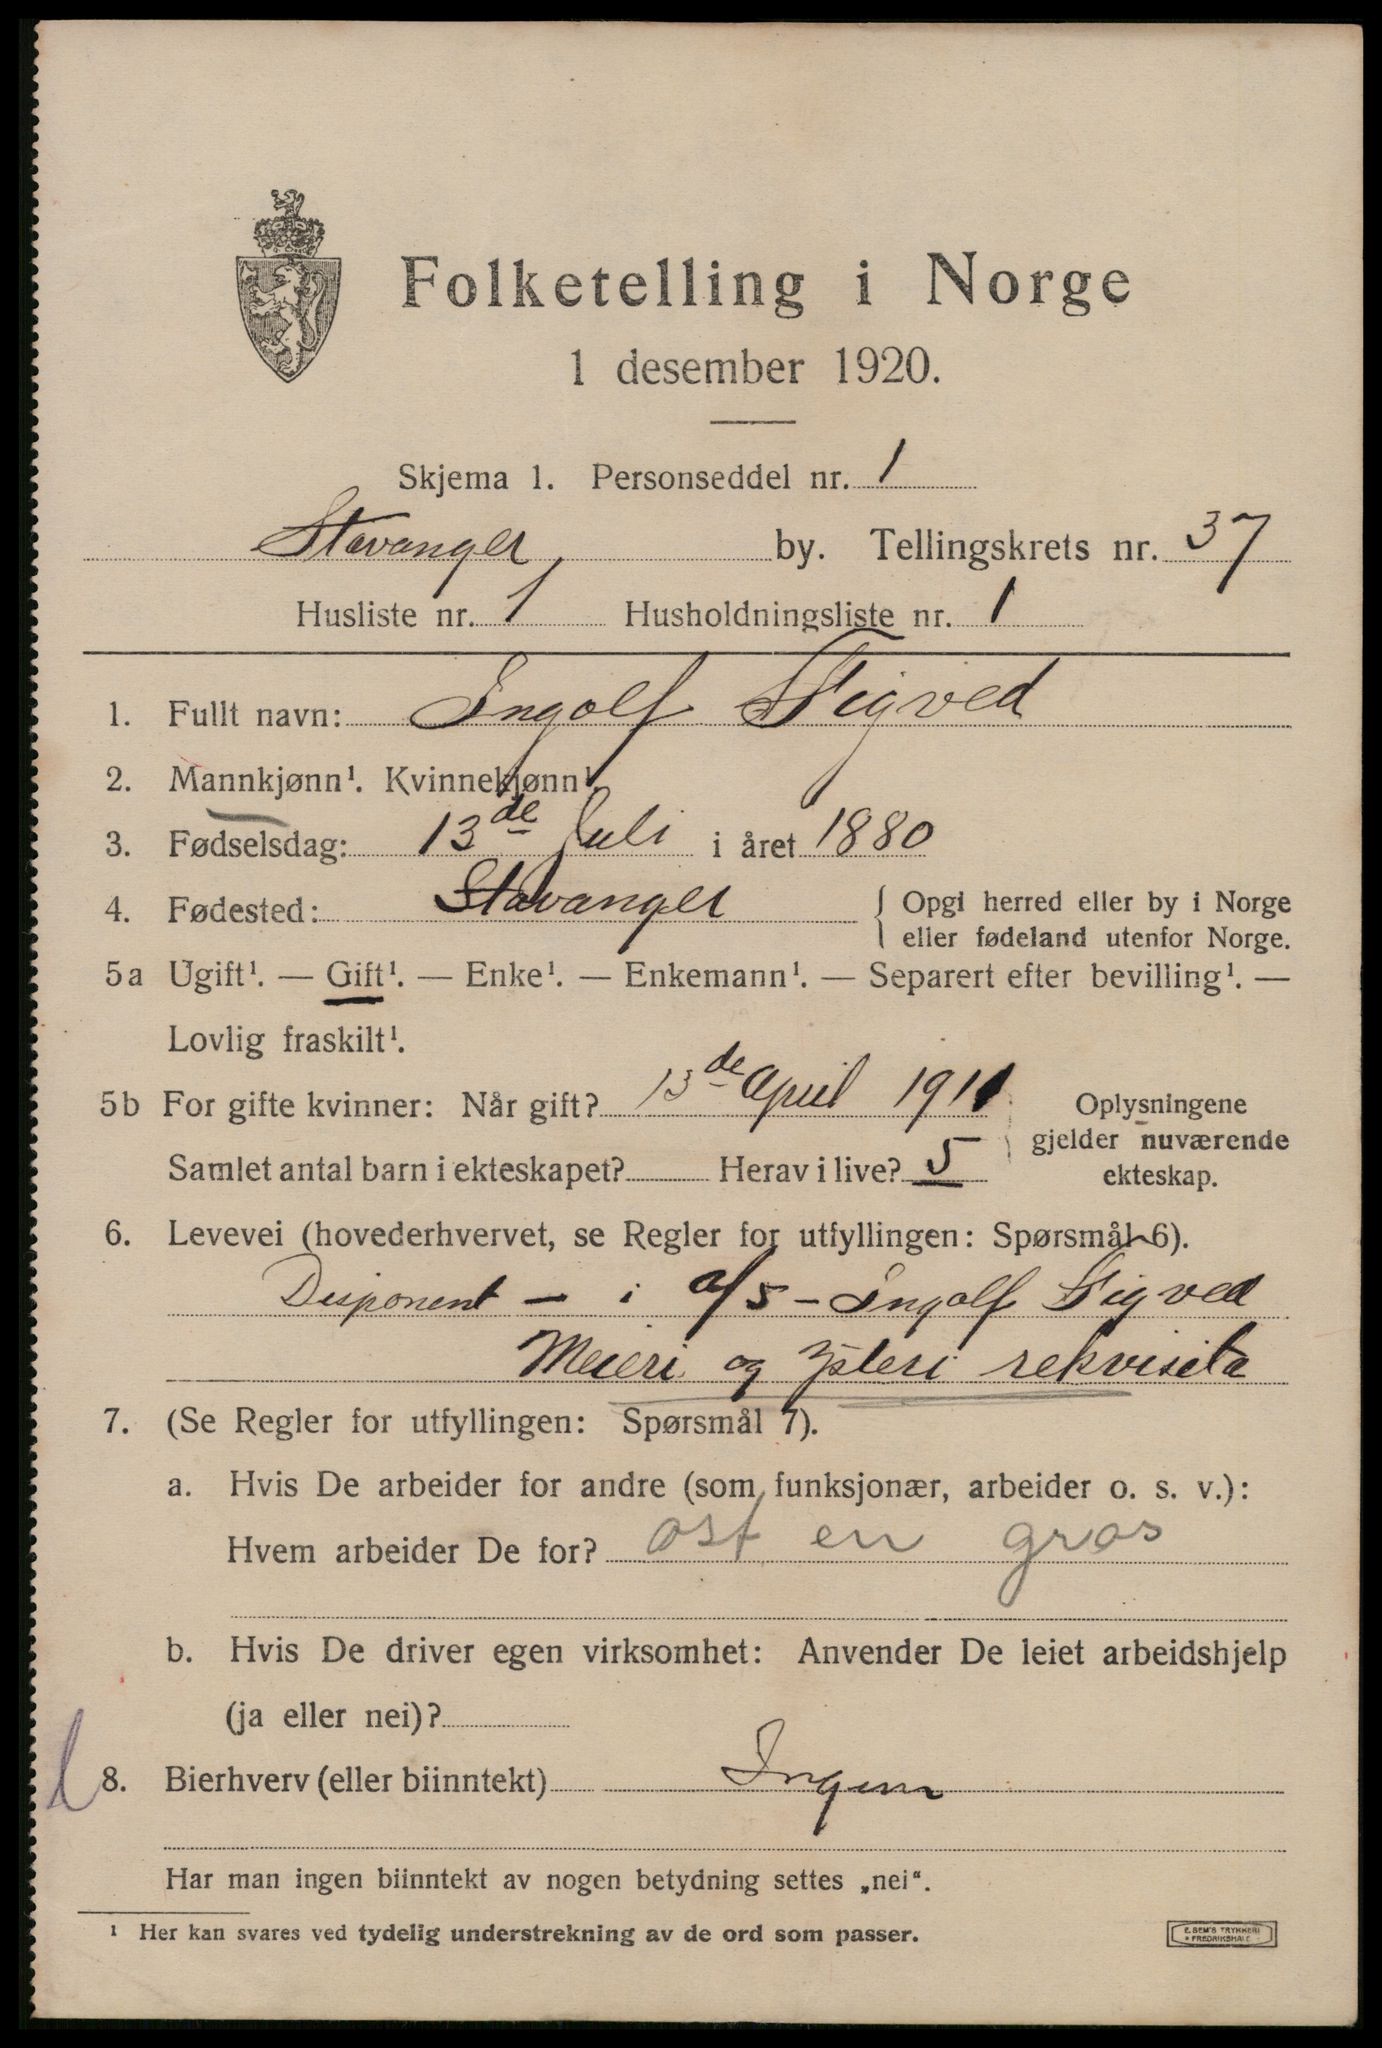 Folketelling i Norge
1 desember 1920.
Skjema 1. Personseddel nr. 1
Stavanger by. Tellingskrets nr. 37
Husliste nr. 1 Husholdningsliste nr. 1
1. Fullt navn: Ingolf Sigved
2. Mannkjønn¹. Kvinnekjønn¹.
3. Fødselsdag: 13de Juli i året 1880
4. Fødested: Stavanger { Opgi herred eller by i Norge
eller fødeland utenfor Norge.
5a Ugift¹. — Gift¹. — Enke¹. — Enkemann¹. — Separert efter bevilling¹. —
Lovlig fraskilt¹.
5b For gifte kvinner: Når gift? 13de April 1911 Oplysningene
gjelder nuværende
Samlet antal barn i ekteskapet? Herav i live? 5 ekteskap.
6. Levevei (hovederhvervet, se Regler for utfyllingen: Spørsmål 6).
Disponent – i a/s – Ingolf Sigved
Meieri og Ysteri rekvisita
7. (Se Regler for utfyllingen: Spørsmål 7).
a. Hvis De arbeider for andre (som funksjonær, arbeider o. s. v.):
Hvem arbeider De for? ost en gros
b. Hvis De driver egen virksomhet: Anvender De leiet arbeidshjelp
(ja eller nei)?
8. Bierhverv (eller biinntekt) Ingen
Har man ingen biinntekt av nogen betydning settes „nei“.
¹ Her kan svares ved tydelig understrekning av de ord som passer.
E. SEM'S TRYKKERI
FREDRIKSHALD